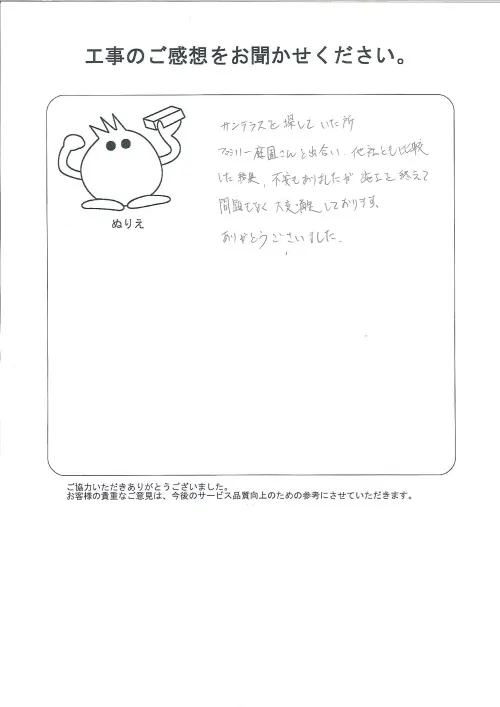 工事のご感想をお聞かせください。
サンテラスを探していた所
ファミリー庭園さんと出合い、他社とも比較
した結果、不安もありましたが 施工を終えて
問題もなく 大変満足しております。
ありがとうございました。
ぬりえ
ご協力いただきありがとうございました。
お客様の貴重なご意見は、今後のサービス品質向上のための参考にさせていただきます。